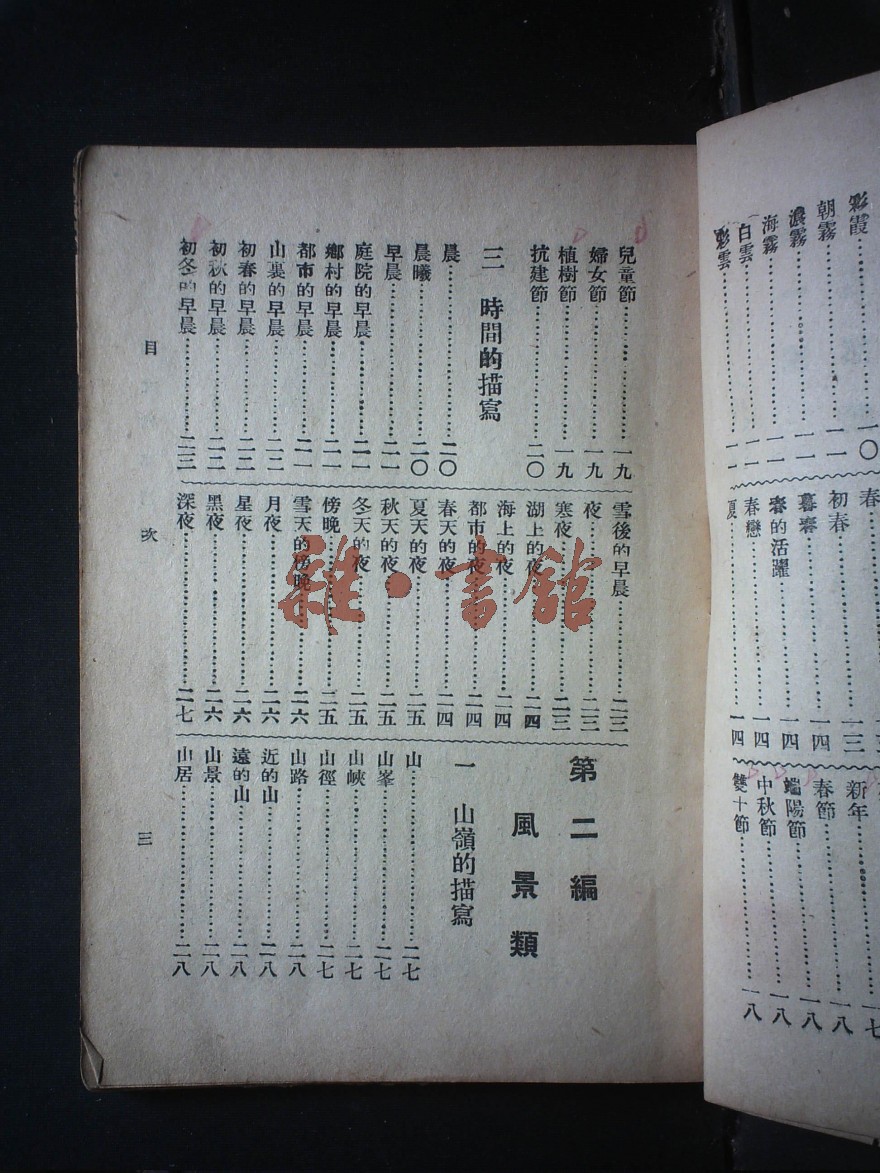 霞……一〇
朝霧……一一
濃霧……一一
海霧……一一
白雲……一一
雲……一一
春
初春……一三
暮春……一四
春的活躍……一四
春戀……一四
夏……一四
新年……一七
春節……一八
端陽節……一八
中秋節……一八
雙十節……一八
兒童節……一九
婦女節……一九
植樹節……一九
抗建節……二〇
三 時間的描寫
晨……二〇
晨曦……二〇
早晨……二一
庭院的早晨……二一
鄉村的早晨……二一
都市的早晨……二一
山裏的早晨……二二
初春的早晨……二二
初秋的早晨……二二
初冬的早晨……二三
雪後的早晨……二三
夜……二三
寒夜……二三
湖上的夜……二四
海上的夜……二四
都市的夜……二四
春天的夜……二四
夏天的夜……二五
秋天的夜……二五
冬天的夜……二五
傍晚……二五
雪天的傍晚……二六
月夜……二六
星夜……二六
黑夜……二六
深夜……二七
第二編
風景類
一 山嶺的描寫
山……二七
山峯……二七
山峽……二七
山徑……二七
山路……二八
近的山……二八
遠的山……二八
山景……二八
山居……二八
目 次
三
雜·書館